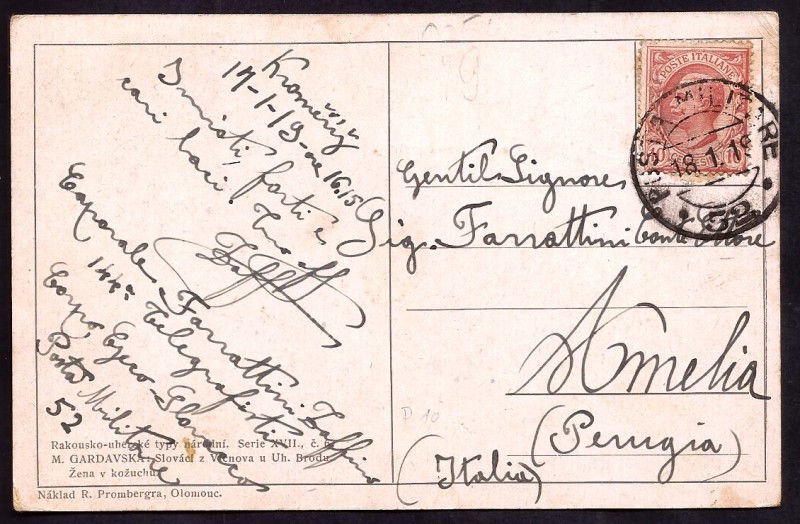 Kroměříž
17-1-19 - ore 16.15
Infiniti, forti e
cari baci.
Tuo
Zaff
Caporale Farrattini Zaffino
144ª Telegrafisti
Corpo Czeco-Slovacco
Posta Militare
52
Rakousko-uherské typy národní. Serie XVII., č. 6.
M. GARDAVSKÁ: Slováci z Vlčnova u Uh. Brodu.
Žena v kožuchu.
Náklad R. Prombergra, Olomouc.
POSTE ITALIANE
POSTA MILITARE
18.1.19
52
Gentil Signore
Sig. Farrattini Conte Ettore
Amelia
(Perugia)
(Italia)
P 10